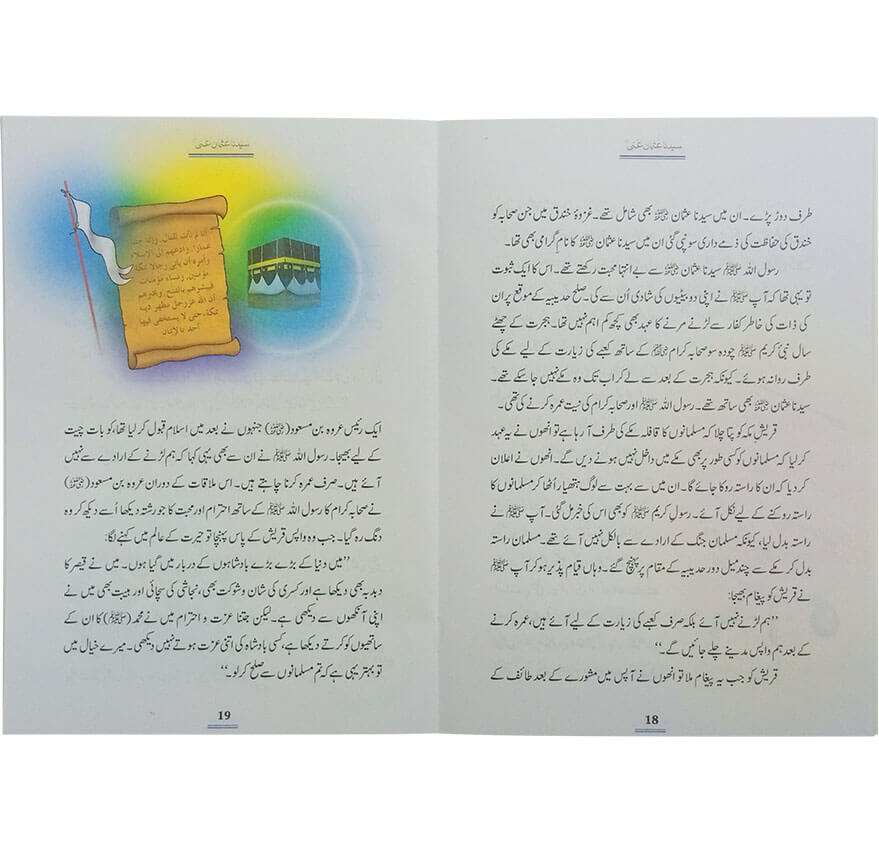 سیدنا عثمان غنیؓ
طرف دوڑ پڑے۔ ان میں سیدنا عثمان ؓ بھی شامل تھے۔ غزوۂ خندق میں جن صحابہ کو
خندق کی حفاظت کی ذمے داری سونپی گئی ان میں سیدنا عثمان ؓ کا نام گرامی بھی تھا۔
رسول اللہ ﷺ سیدنا عثمان ؓ سے بے انتہا محبت رکھتے تھے۔ اس کا ایک ثبوت
تو یہی تھا کہ آپ ﷺ نے اپنی دو بیٹیوں کی شادی اُن سے کی۔ صلح حدیبیہ کے موقع پر ان
کی ذات کی خاطر کفار سے لڑنے مرنے کا عہد بھی کچھ کم اہم نہیں تھا۔ ہجرت کے چھٹے
سال نبیٔ کریم ﷺ چودہ سو صحابہ کرام ؓ کے ساتھ کعبے کی زیارت کے لیے مکے کی
طرف روانہ ہوئے۔ کیونکہ ہجرت کے بعد سے لے کر اب تک وہ مکے نہیں جا سکے تھے۔
سیدنا عثمان ؓ بھی ساتھ تھے۔ رسول اللہ ﷺ اور صحابہ کرام کی نیت عمرہ کرنے کی تھی۔
قریشِ مکہ کو پتا چلا کہ مسلمانوں کا قافلہ مکے کی طرف آ رہا ہے تو انھوں نے یہ عہد
کر لیا کہ مسلمانوں کو کسی طور پر بھی مکے میں داخل نہیں ہونے دیں گے۔ انھوں نے اعلان
کر دیا کہ ان کا راستہ روکا جائے گا۔ ان میں سے بہت سے لوگ ہتھیار اُٹھا کر مسلمانوں کا
راستہ روکنے کے لیے نکل آئے۔ رسولِ کریم ﷺ کو بھی اس کی خبر مل گئی۔ آپ ﷺ نے
راستہ بدل لیا، کیونکہ مسلمان جنگ کے ارادے سے بالکل نہیں آئے تھے۔ مسلمان راستہ
بدل کر مکے سے چند میل دور حدیبیہ کے مقام پر پہنچ گئے۔ وہاں قیام پذیر ہو کر آپ ﷺ
نے قریش کو پیغام بھیجا:
’’ہم لڑنے نہیں آئے بلکہ صرف کعبے کی زیارت کے لیے آئے ہیں، عمرہ کرنے
کے بعد ہم واپس مدینے چلے جائیں گے۔‘‘
قریش کو جب یہ پیغام ملا تو انھوں نے آپس میں مشورے کے بعد طائف کے
18
سیدنا عثمان غنیؓ
أنا لم نأت لقتال
عمارا، وادعهم إلى الإسلام
وأمره أن يأتي رجالا بمكة
مؤمنين، ونساء مؤمنات
فيبشرهم بالفتح، ويخبرهم
أن الله عز وجل مظهر دينه
بمكة، حتى لا يستخفى فيها
أحد بالإيمان
ایک رئیس عروہ بن مسعود (ؓ) جنہوں نے بعد میں اسلام قبول کر لیا تھا، کو بات چیت
کے لیے بھیجا۔ رسول اللہ ﷺ نے ان سے بھی یہی کہا کہ ہم لڑنے کے ارادے سے نہیں
آئے ہیں۔ صرف عمرہ کرنا چاہتے ہیں۔ اس ملاقات کے دوران عروہ بن مسعود (ؓ)
نے صحابہ کرام کا رسول اللہ ﷺ کے ساتھ احترام اور محبت کا جو رشتہ دیکھا اُسے دیکھ کر وہ
دنگ رہ گیا۔ جب وہ واپس قریش کے پاس پہنچا تو حیرت کے عالم میں کہنے لگا:
’’میں دنیا کے بڑے بڑے بادشاہوں کے دربار میں گیا ہوں۔ میں نے قیصر کا
دبدبہ بھی دیکھا ہے اور کسریٰ کی شان و شوکت بھی، نجاشی کی سچائی اور ہیبت بھی میں نے
اپنی آنکھوں سے دیکھی ہے۔ لیکن جتنا عزت و احترام میں نے محمد (ﷺ) کا ان کے
ساتھیوں کو کرتے دیکھا ہے، کسی بادشاہ کی اتنی عزت ہوتے نہیں دیکھی۔ میرے خیال میں
تو بہتر یہی ہے کہ تم مسلمانوں سے صلح کر لو۔‘‘
19